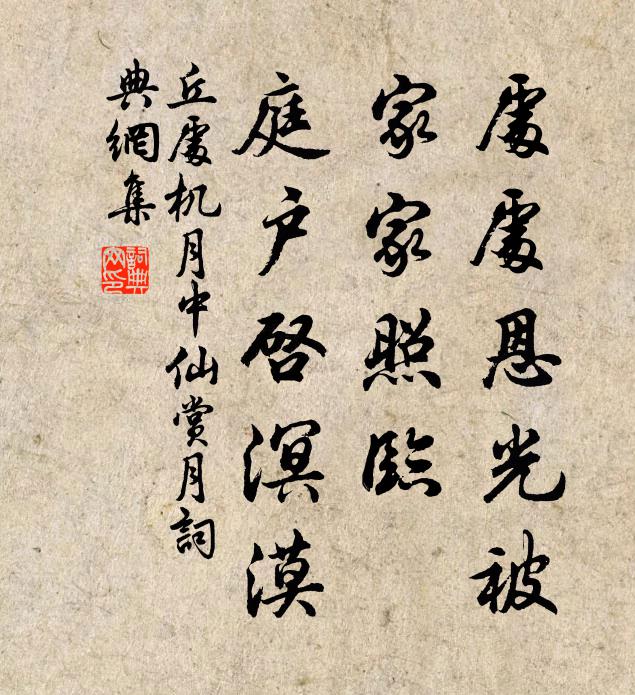 處處恩光被
家家照臨
庭戶啓溟漠
丘處机月中仙賞月詞
典網集
詞典網印